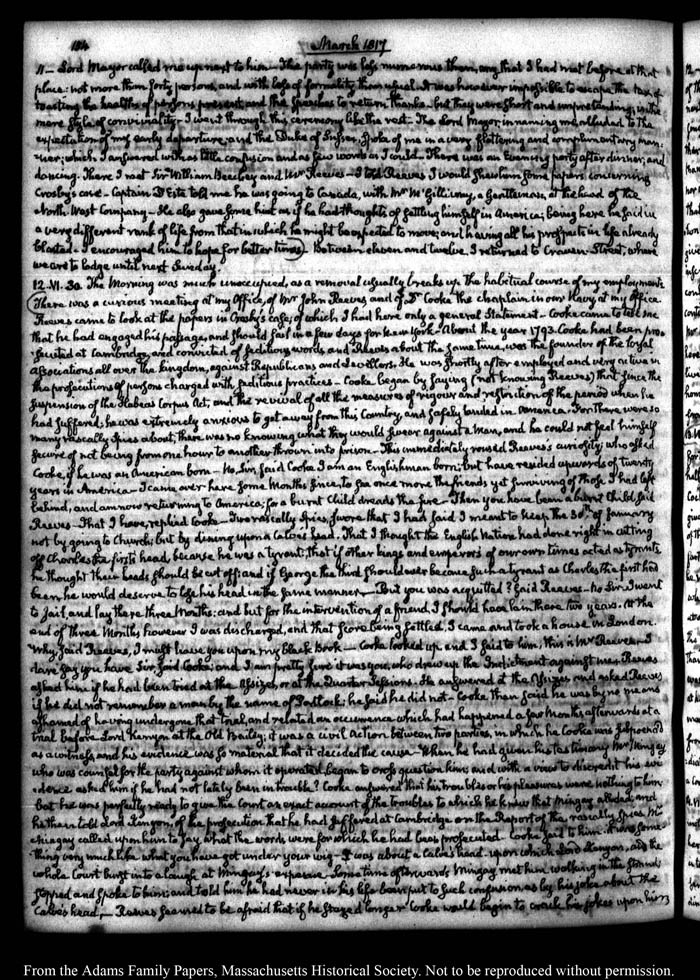 184 March 1817
11 — Lord Mayor called me up next to him — The party was less numerous than any that I had met before at that
place: not more than forty persons, and with less of formality than usual. It was however impossible to escape the task of
toasting the healths of persons present, and the speeches to return thanks — but they were short and unpretending, in the
mere style of conviviality — I went through this ceremony like the rest — The Lord Mayor, in naming me alluded to the
expectation of my early departure; and the Duke of Sussex, spoke of me in a very flattering and complimentary man-
ner; which I answered with as little confusion and as few words as I could — There was an Evening party after dinner, and
dancing. There I met Sir William Beechey and Mr Reeves — I told Reeves I would shew him some papers concerning
Crosby's case — Captain D'Este told me he was going to Canada, with Mr McGillivray, a Gentleman, at the head of the
North West Company — He also gave some hint as if he had thoughts of settling himself in America; being here he said in
a very different rank of life from that in which he might be expected to move; and having all his prospects in life already
blasted — I encouraged him to hope for better times) Between eleven and twelve, I returned to Craven-Street, where
we are to lodge until next Tuesday.
12. VI. 30. The Morning was much unoccupied, as a removal usually breaks up the habitual course of my employments
(There was a curious meeting at my Office, of Mr John Reeves and of Dr Cooke the chaplain in our Navy at my office
Reeves came to look at the papers in Crosby's case, of which I had here only a general Statement — Cooke came to tell me
that he had engaged his passage, and should sail in a few days for New York — About the year 1793. Cooke had been pro-
secuted at Cambridge, and convicted of seditious words and Reeves about the same time, was the founder of the loyal
associations all over the kingdom, against Republicans and Levellers. He was shortly after employed and very active in
the prosecutions of persons charged with seditious practices — Cooke began by saying (not knowing Reeves) that since the
suspension of the Habeas Corpus Act, and the revival of all the measures of rigour and restriction of the period when he
had suffered, he was extremely anxious to get away from this Country, and safely landed in America. For There were so
many rascally Spies about, there was no knowing what they would swear against a Man, and he could not feel himself
secure of not being from one hour to another thrown into prison — This immediately roused Reeves's curiosity; who asked
Cooke, if he was an American born — No, Sir, said Cooke I am an Englishman born; but have resided upwards of twenty
years in America — I came over here some Months since, to see once more the friends yet surviving of those I had left
behind, and am now returning to America; for a burnt Child dreads the fire — Then you have been a burnt Child said
Reeves — That I have, replied Cooke — Two rascally Spies, swore that I had said I meant to keep the 30th of January
not by going to Church, but by dining upon a Calves head. That I thought the English Nation had done right in cutting
off Charles the first's head, because he was a tyrant, that if other kings and emperors of our own times acted as tyrants
he thought their heads should be cut off; and if George the third should ever become such a tyrant as Charles the first had
been he would deserve to lose his head in the same manner — But you was acquitted? said Reeves — No Sir I went
to Jail, and lay there three Months: and but for the intervention of a friend I should have lain there two years. At the
end of three Months however I was discharged, and that score being settled, I came and took a house in London.
Why, said Reeves, I must have you upon my black Book — Cooke looked up, and I said to him, this is Mr Reeves — I
dare say you have Sir, said Cooke; and I am pretty sure it was you, who drew up the Indictment against me. Reeves
asked him if he had been tried at the Assizes, or at the Quarter Sessions. He answered at the Assizes and asked Reeves
if he did not remember a man by the name of Portlock; he said he did not — Cooke then said he was by no means
ashamed of having undergone that trial, and related an occurrence which had happened a few Months afterwards at a
trial before Lord Kenyon at the Old Bailey; it was a civil Action between two parties, in which he Cooke was subpoena'd
as a witness, and his evidence was so material that it decided the cause — When he had given his testimony Mr Mingay
who was counsel for the party against whom it operated, began to cross question him; and with a view to discredit his evi-
-dence asked him if he had not lately been in trouble? Cooke answered that his troubles or his pleasures were nothing to him
but he was perfectly ready to give the Court an exact account of the troubles to which he knew that Mingay alluded, and
he then told Lord Kenyon, of the prosecution that he had suffered at Cambridge on the Report of the rascally Spies Mr
Mingay called upon him to say what the words were for which he had been prosecuted. Cooke said to him. it was some-
thing very much like what you have got under your wig — It was about a Calve's head — upon which Lord Kenyon, and the
whole Court burst into a laugh at Mingay's expense. Some time afterwards Mingay met him walking in the Strand
stopped and spoke to him: and told him he had never in his life been put to such confusion as by his joke about the
Calve's head. — Reeves seemed to be afraid that if he stayed longer Cooke would begin to crack his jokes upon him)
From the Adams Family Papers, Massachusetts Historical Society. Not to be reproduced without permission.